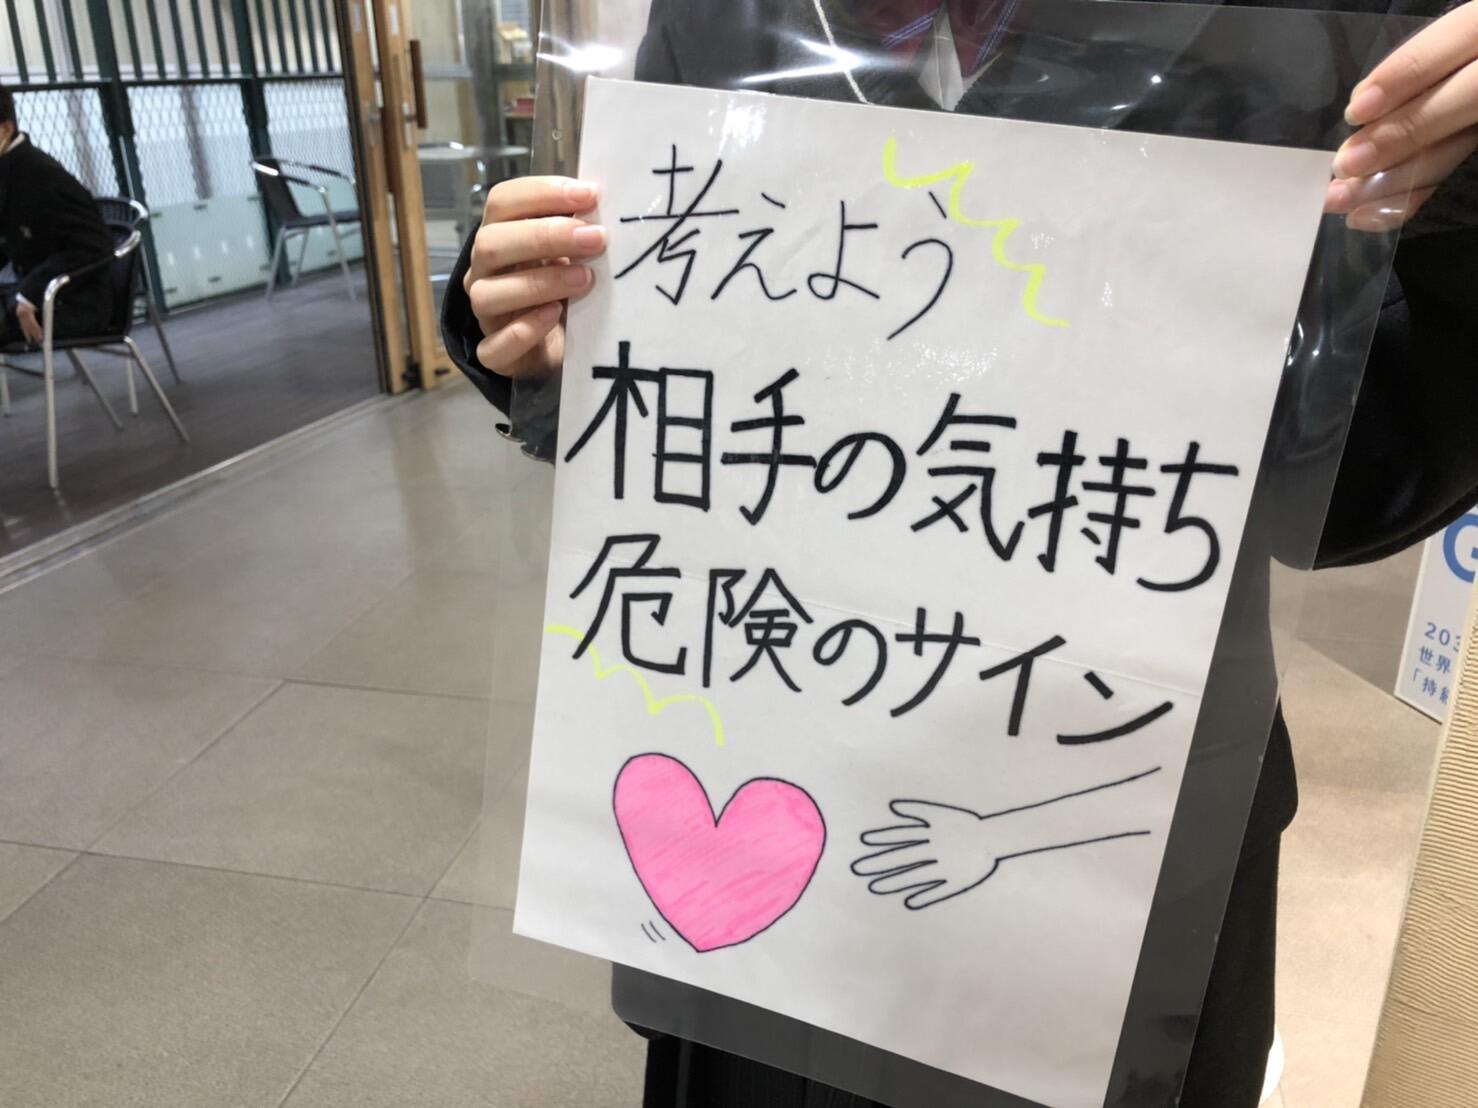 考えよう
相手の気持ち
危険のサイン
G
203
世界
「持続